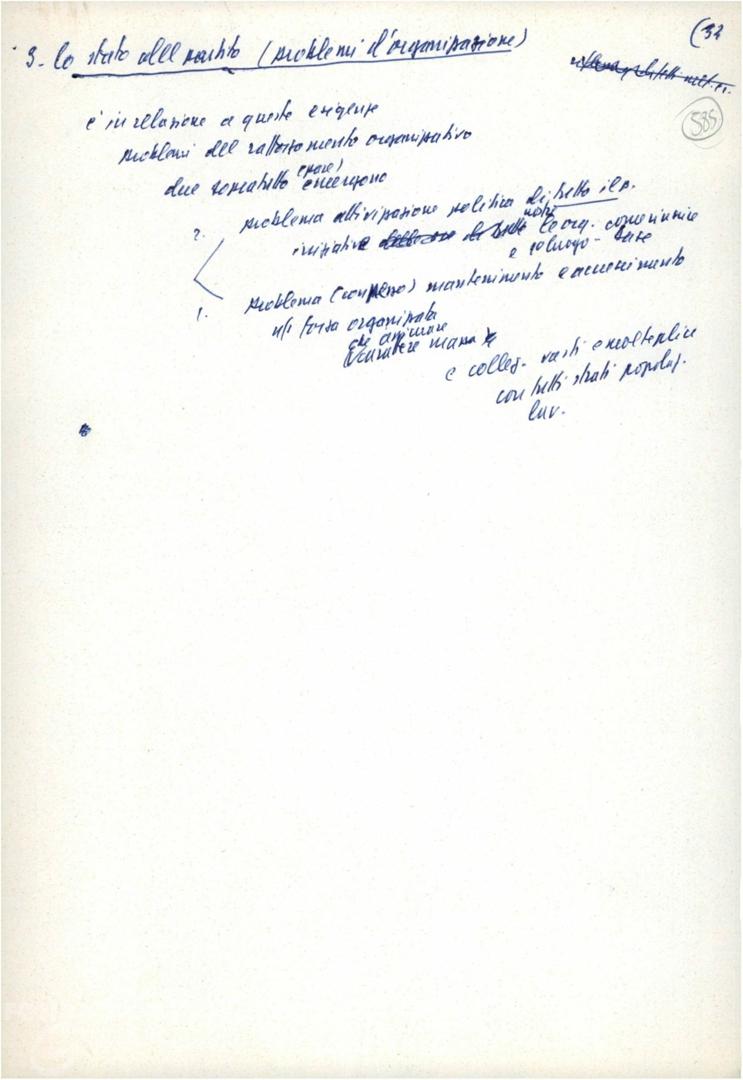 (32
3. lo stato del partito (problemi d'organizzazione)
585
è in relazione a queste esigenze
problemi del rafforzamento organizzativo
due soprattutto (pare) emergono
2. problema attivizzazione politica di tutto il p.
iniziative nostre le org. cominciare
e soluogo - base
1. problema (complesso) mantenimento e accrescimento
n/s forza organizzata
che assicurare
carattere massa
e colleg. vasti e molteplici
con tutti strati popolaz.
lav.